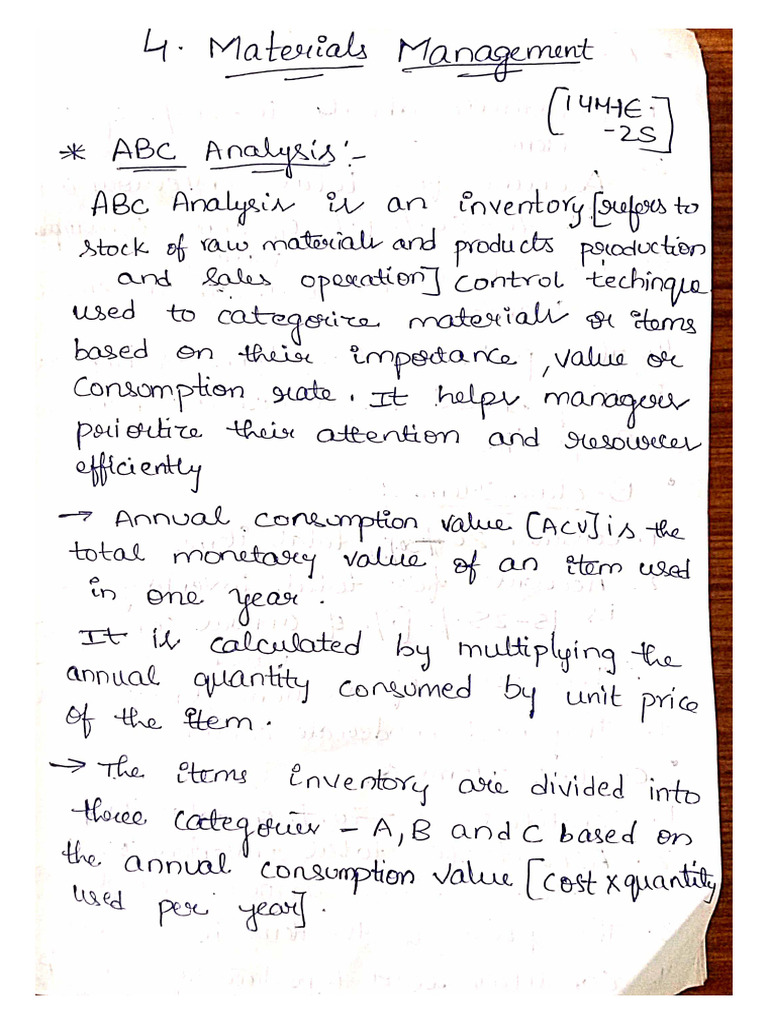 4. Materials Management
[14M+E.
-2S]
* ABC Analysis:-
ABC Analysis is an inventory [refers to
stock of raw materials and products production
and sales operation] control techinque
used to categorize materials or items
based on their importance, value or
Consumption rate. It helps managers
prioritize their attention and resources
efficiently
→ Annual consumption value [ACV] is the
total monetary value of an item used
in one year.
It is calculated by multiplying the
annual quantity consumed by unit price
of the item.
→ The items inventory are divided into
three categories - A, B and C based on
the annual consumption value [cost x quantity
used per year].